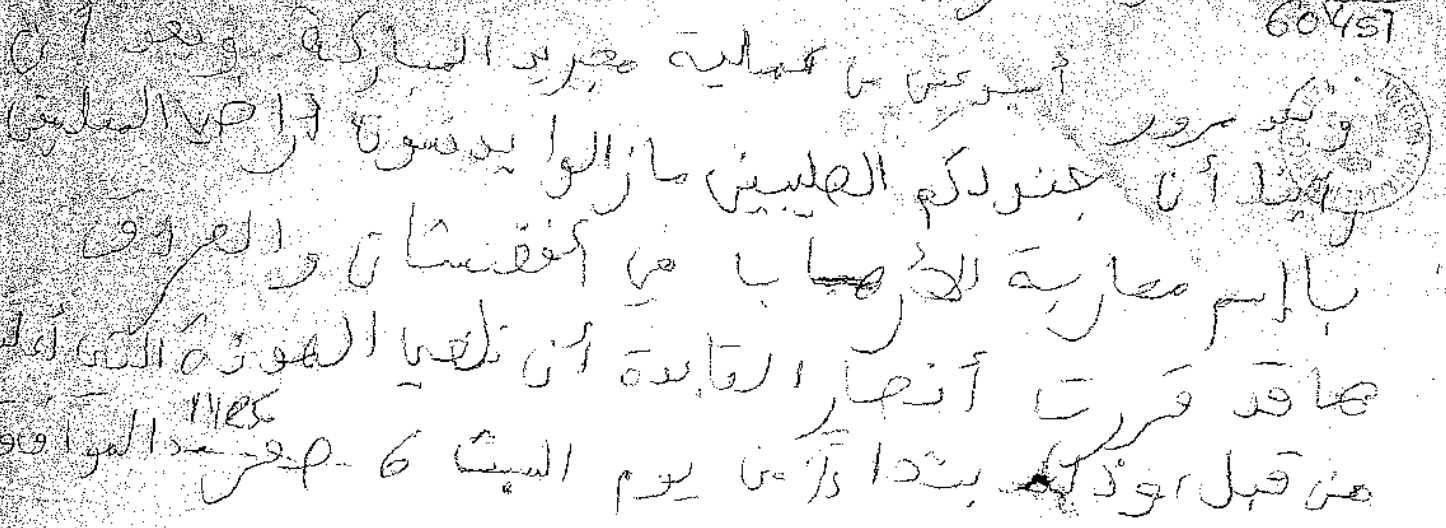 60451
وبعد مرور أسبوعين من عملية مدريد المباركة وبعد أن
رأينا أن جنودكم الصليبين مازالوا يدنسون أراضي المسلمين
بإاسم محاربة الأرهابا في أفغنستان والعراق
هاقد قررت أنصار القايدة أن تلغيا الهودنة التي
من قبل وذلك بتداأ من يوم السبت 6 صفر 1425 الموافق